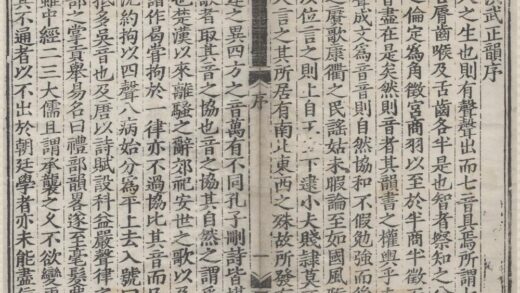 武正韻序
人之生也則有聲聲出而七音具焉所謂
脣齒喉及舌齒各半是也智者察知之
倫定為角徵宮商羽以至於半商半徵
音盡在是矣然則音者其韻書之權輿乎
聲成文為音音則自然協和不假勉強而後
之賡歌康衢之民謠姑未暇論至如國風
以位言之則上自王下逮小夫賤隸莫
人言之其所居有南北東西之殊故所發
序
一
之異四方之音萬有不同孔子刪詩皆
歌者取其音之協也音之協其自然之謂
也楚漢以來離騷之辭郊祀安世之歌以及
諸作曷嘗拘於一律亦不過協比其音而
沈約拘以四聲八病始分為平上去入號曰
抵多吳音也及唐以詩賦設科益嚴聲律之
部之掌貢舉易名曰禮部韻略遂至毫髮
雖中經二三大儒且謂承襲之久不欲變
其不通者以不出於朝廷學者亦未能盡信